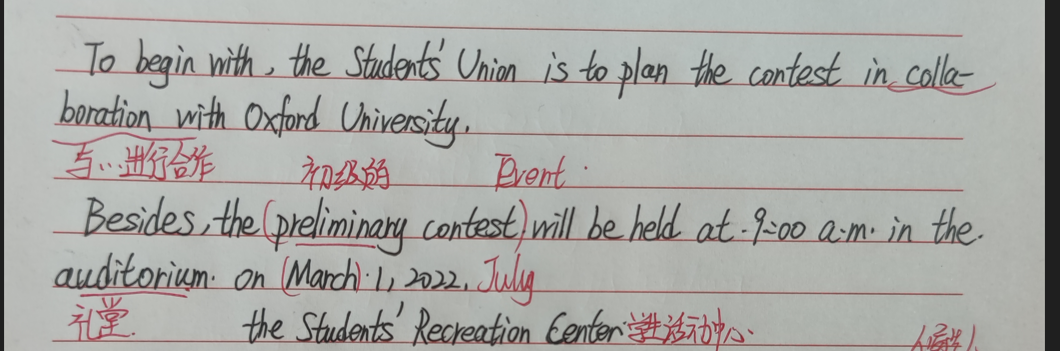 To begin with, the Students' Union is to plan the contest in colla-
boration with Oxford University.
与...进行合作 初级的 Event
Besides, the (preliminary contest) will be held at 9:00 a.m. in the
auditorium on (March) 1, 2022. July
礼堂. the Students' Recreation Center 学生活动中心